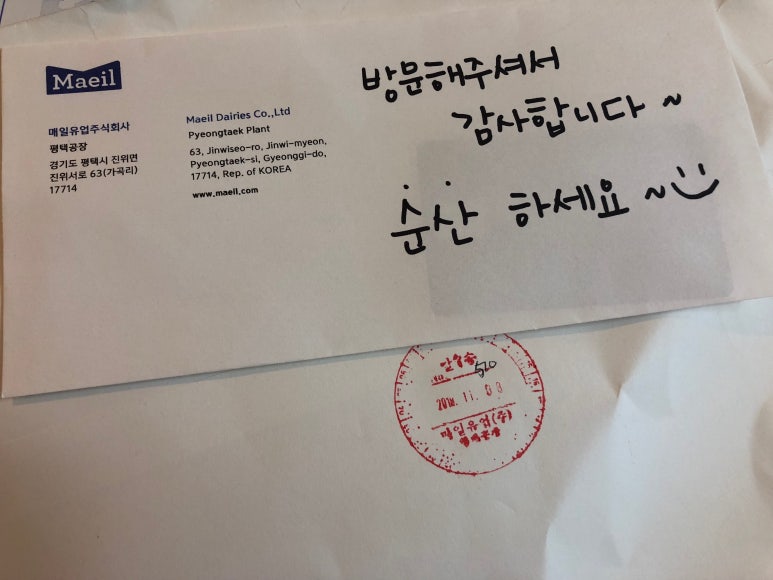 Maeil
매일유업주식회사
평택공장
경기도 평택시 진위면
진위서로 63(가곡리)
17714
Maeil Dairies Co.,Ltd
Pyeongtaek Plant
63, Jinwiseo-ro, Jinwi-myeon,
Pyeongtaek-si, Gyeonggi-do,
17714, Rep. of KOREA
www.maeil.com
방문해주셔서
감사합니다~
순산 하세요~
520
2018. 11. 08
매일유업(주)